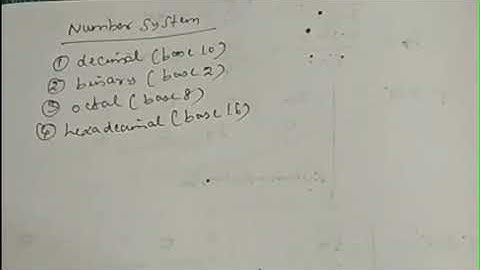 Number System
① decimal (base 10)
② binary (base 2).
③ octal (base 8)
④ hexadecimal (base 16)